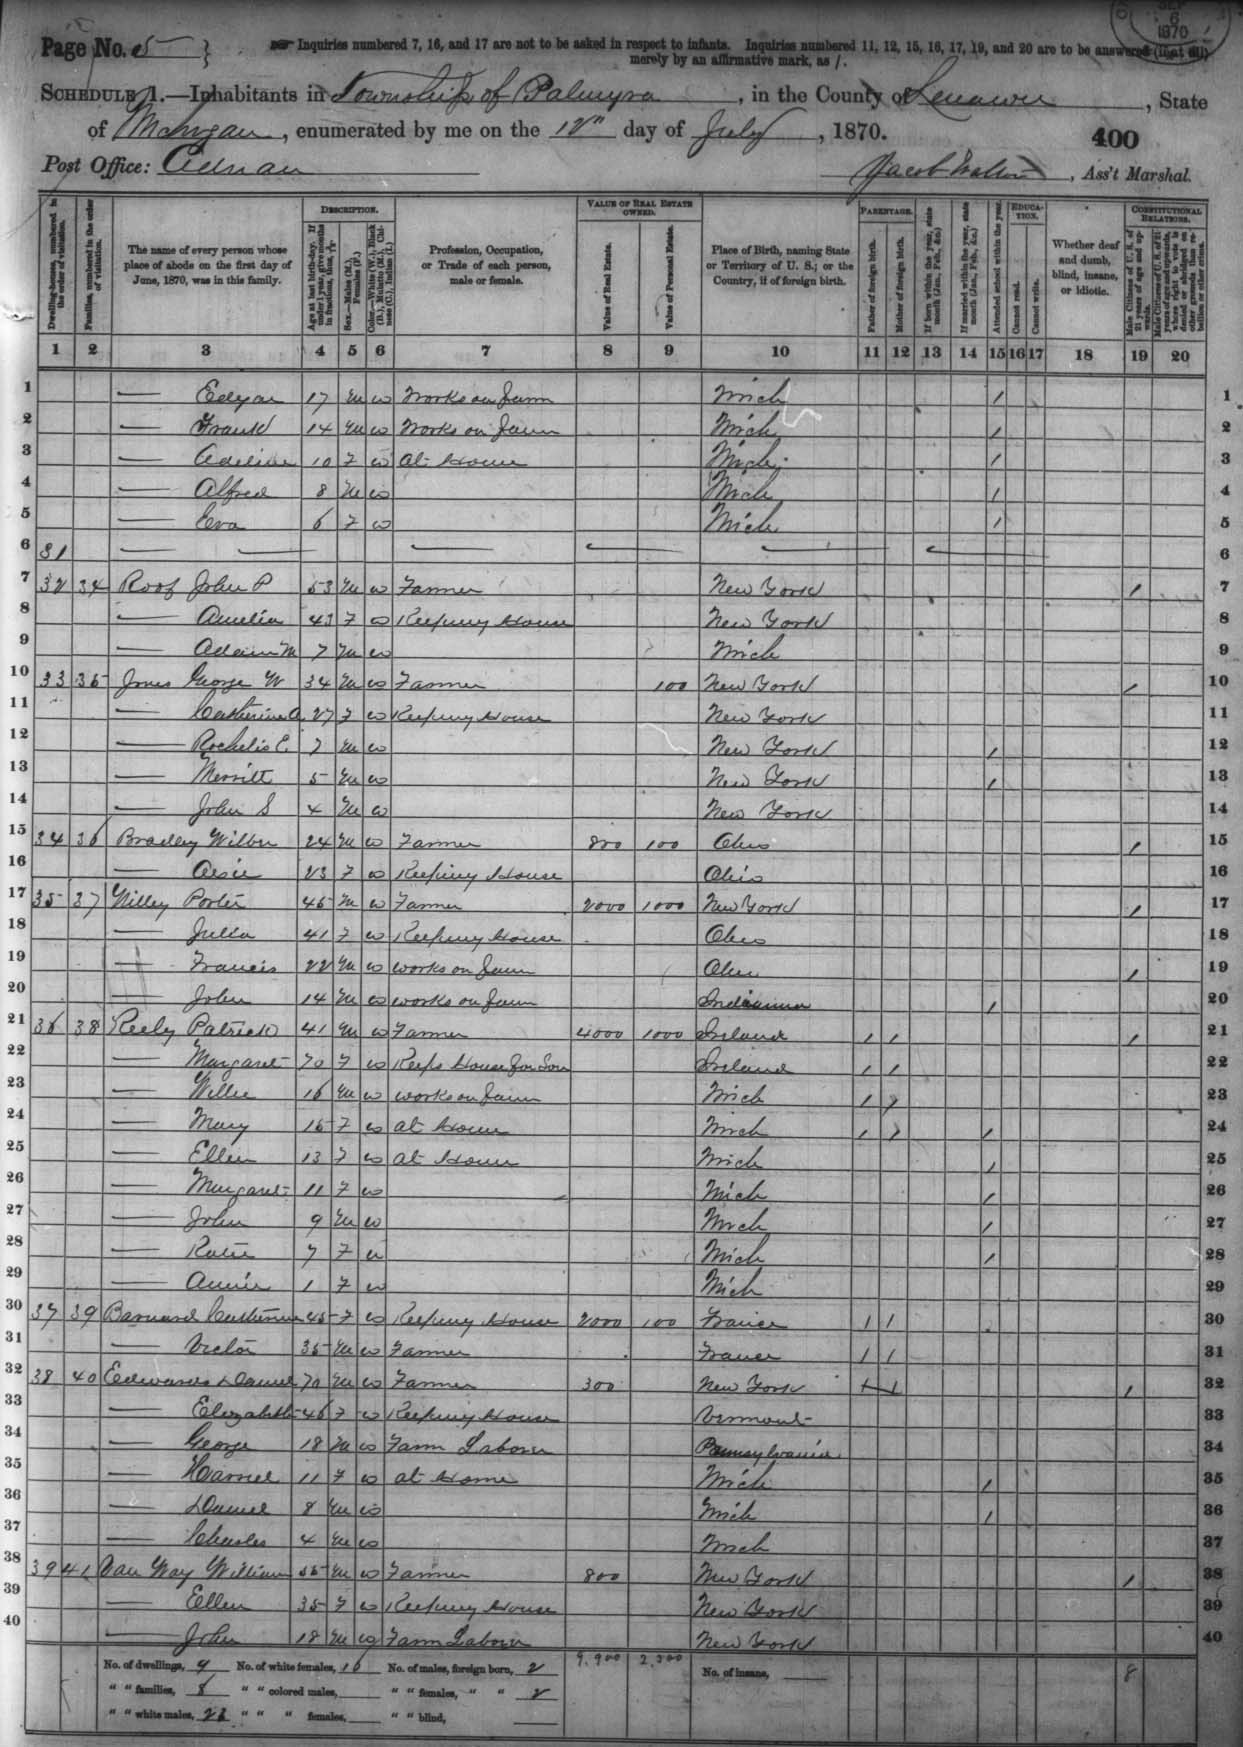 SEP 6 1870
Page No. 5 }
Inquiries numbered 7, 16, and 17 are not to be asked in respect to infants. Inquiries numbered 11, 12, 15, 16, 17, 19, and 20 are to be answered (if at all)
merely by an affirmative mark, as /.
SCHEDULE 1.—Inhabitants in Township of Palmyra, in the County of Lenawee, State
of Michigan, enumerated by me on the 12th day of July, 1870.
400
Post Office: Adrian
Jacob Walton, Ass't Marshal.
Dwelling-houses, numbered in the order of visitation.
Families, numbered in the order of visitation.
The name of every person whose place of abode on the first day of June, 1870, was in this family.
DESCRIPTION.
Age at last birth-day. If under 1 year, give months in fractions, thus, 3/12
Sex.—Males (M.), Females (F.)
Color.—White (W.), Black (B.), Mulatto (M.), Chinese (C.), Indian (I.)
Profession, Occupation, or Trade of each person, male or female.
VALUE OF REAL ESTATE OWNED.
Value of Real Estate.
Value of Personal Estate.
Place of Birth, naming State or Territory of U. S.; or the Country, if of foreign birth.
PARENTAGE.
Father of foreign birth.
Mother of foreign birth.
If born within the year, state month (Jan., Feb., &c.)
If married within the year, state month (Jan., Feb., &c.)
Attended school within the year.
EDUCATION.
Cannot read.
Cannot write.
Whether deaf and dumb, blind, insane, or idiotic.
CONSTITUTIONAL RELATIONS.
Male Citizens of U. S. of 21 years of age and upwards.
Male Citizens of U. S. of 21 years of age and upwards, where right to vote is denied or abridged on other grounds than rebellion or other crime.
1 2 3 4 5 6 7 8 9 10 11 12 13 14 15 16 17 18 19 20
1 — Edgar 17 M W Works on farm Mich / 1
2 — Frank 14 M W Works on farm Mich / 2
3 — Adeline 10 F W At Home Mich / 3
4 — Alfred 8 M W Mich / 4
5 — Eva 6 F W Mich / 5
6 31 — — — — — — 6
7 32 34 Roof John P 53 M W Farmer New York / 7
8 — Amelia 43 F W Keeping House New York 8
9 — Adam M 7 M W Mich 9
10 33 35 Jones George W 34 M W Farmer 100 New York / 10
11 — Catherine A 27 F W Keeping House New York 11
12 — E. 7 M W New York / 12
13 — Merritt 5 M W New York / 13
14 — John S 4 M W New York 14
15 34 36 Bradley Wilber 24 M W Farmer 800 100 Ohio / 15
16 — 23 F W Keeping House Ohio 16
17 35 37 Willey Porter 45 M W Farmer 2000 1000 New York / 17
18 — Julia 41 F W Keeping House Ohio 18
19 — Francis 22 M W works on farm Ohio / 19
20 — John 14 M W works on farm Indiana / 20
21 36 38 Reely Patrick 41 M W Farmer 4000 1000 Ireland / / / 21
22 — Margaret 70 F W Keeps House for Son Ireland / / 22
23 — Willie 16 M W works on farm Mich / / 23
24 — Mary 15 F W at Home Mich / / / 24
25 — Ellen 13 F W at Home Mich / 25
26 — Margaret 11 F W Mich / 26
27 — John 9 M W Mich / 27
28 — Katie 7 F W Mich / 28
29 — Annie 1 F W Mich 29
30 37 39 Barnard Catherine 45 F W Keeping House 2000 100 France / / 30
31 — Victor 35 M W Farmer France / / 31
32 38 40 Edwards Daniel 70 M W Farmer 300 New York / 32
33 — Elizabeth 46 F W Keeping House Vermont 33
34 — George 18 M W Farm Laborer Pennsylvania 34
35 — Harriet 11 F W at Home Mich / 35
36 — Daniel 8 M W Mich / 36
37 — Charles 4 M W Mich 37
38 39 41 Van Way William 55 M W Farmer 800 New York / 38
39 — Ellen 35 F W Keeping House New York 39
40 — John 18 M W Farm Laborer New York 40
No. of dwellings, 9 No. of white females, 16 No. of males, foreign born, 2 9,900 2,300 No. of insane, 8
" " families, 8 " " colored males, " " females, " " 2
" " white males, 23 " " " females, " " blind,